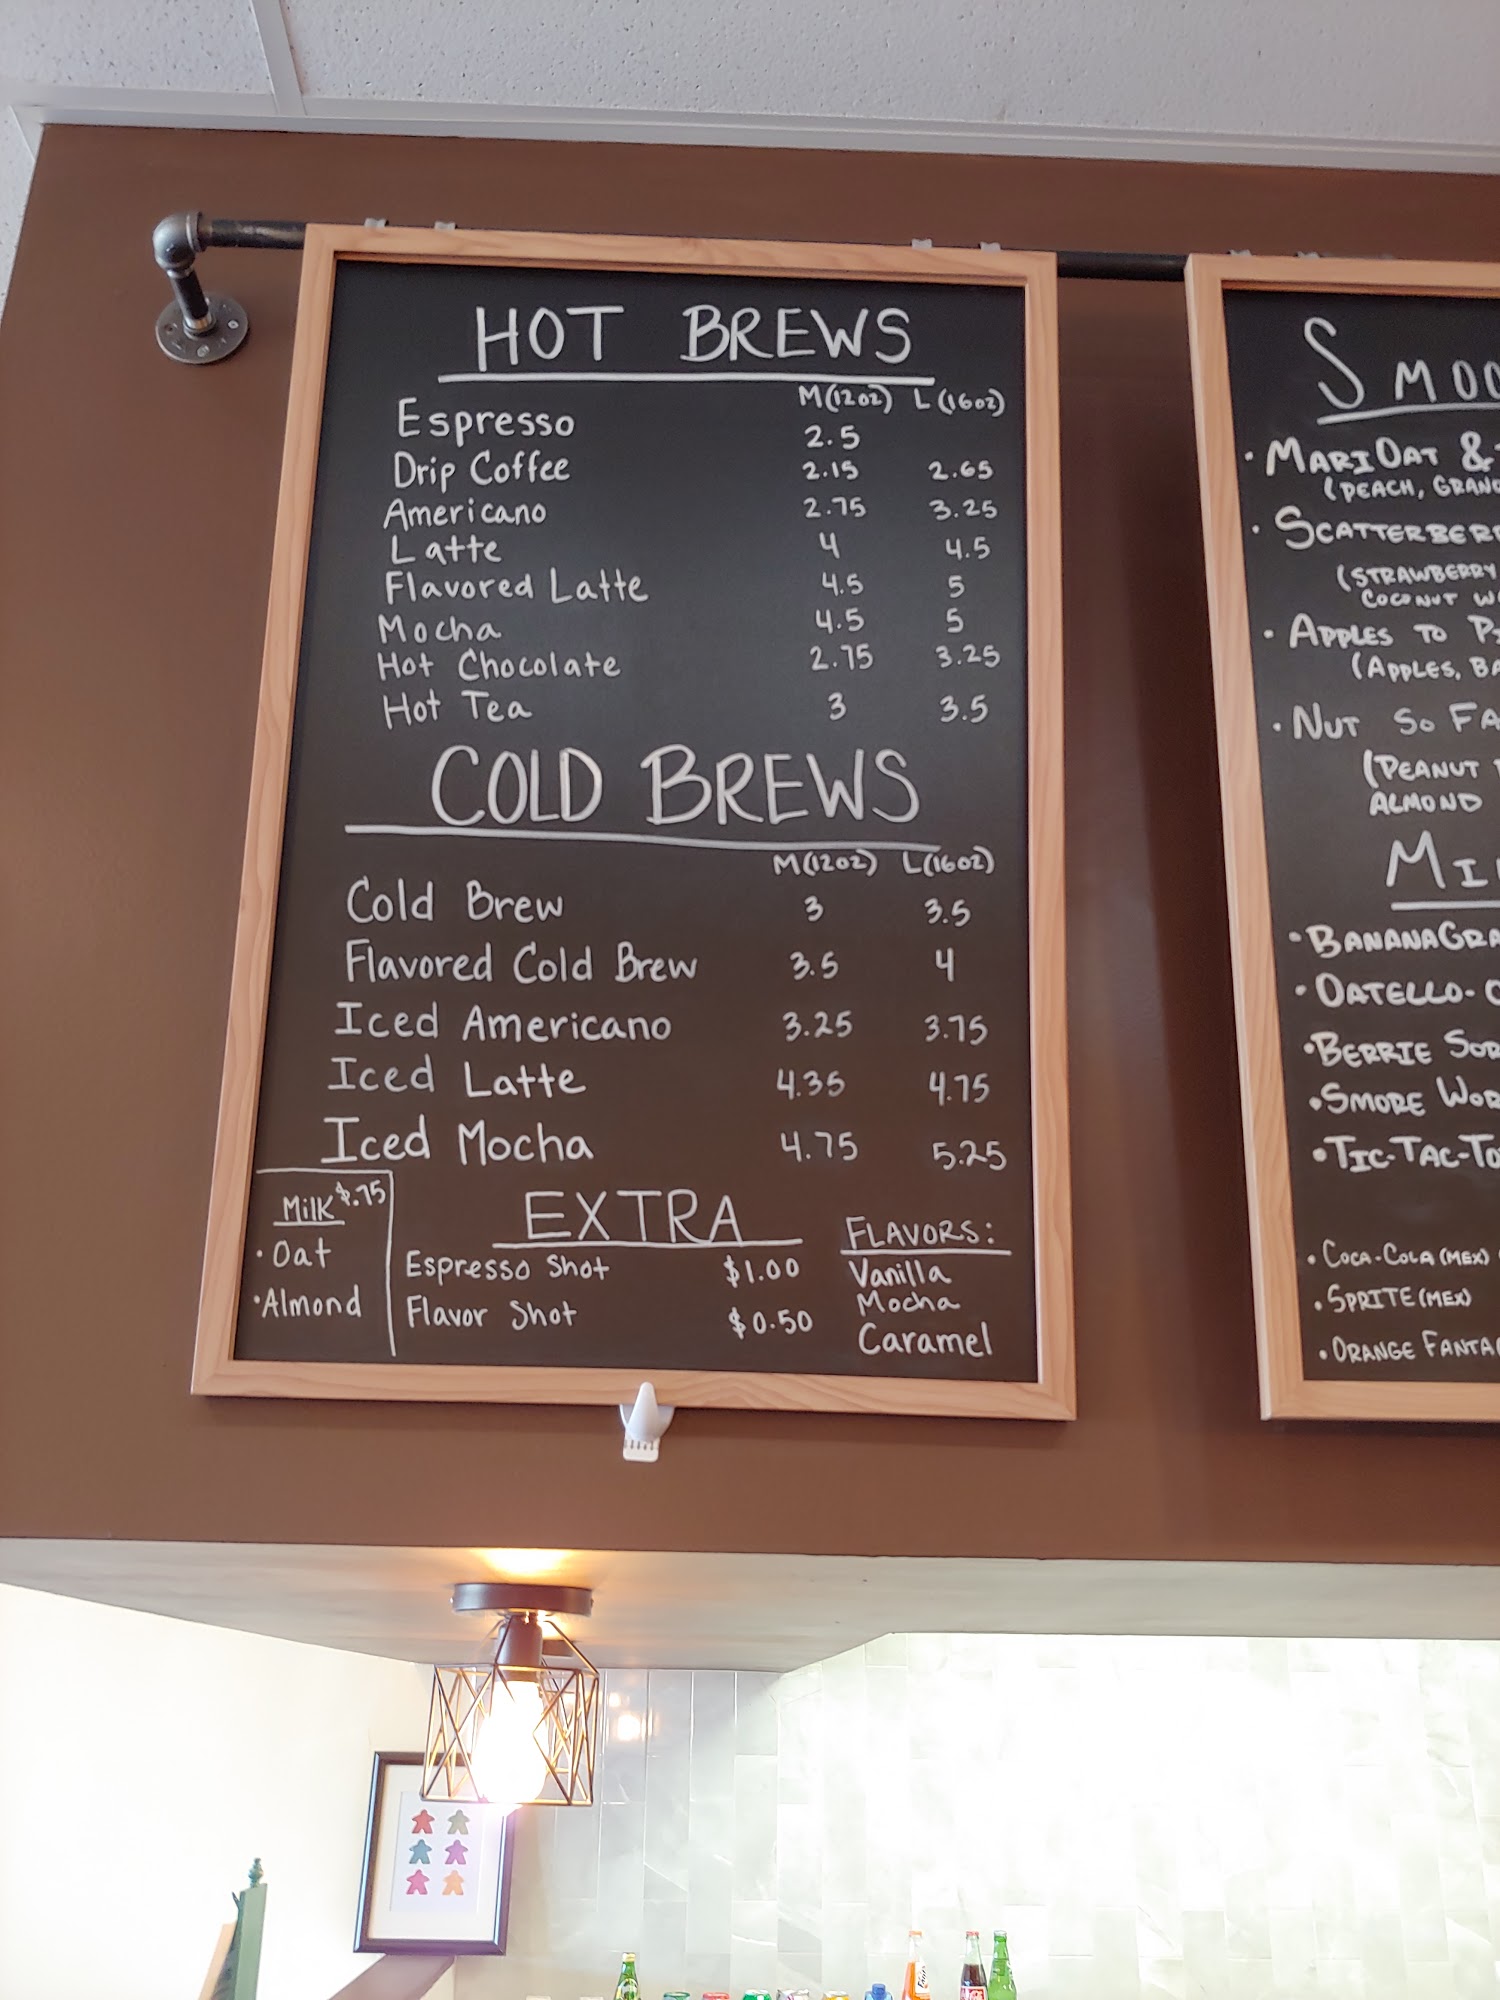 HOT BREWS
M(12oz) L(16oz)
Espresso 2.5
Drip Coffee 2.15 2.65
Americano 2.75 3.25
Latte 4 4.5
Flavored Latte 4.5 5
Mocha 4.5 5
Hot Chocolate 2.75 3.25
Hot Tea 3 3.5
COLD BREWS
M(12oz) L(16oz)
Cold Brew 3 3.5
Flavored Cold Brew 3.5 4
Iced Americano 3.25 3.75
Iced Latte 4.35 4.75
Iced Mocha 4.75 5.25
Milk $.75
• Oat
• Almond
EXTRA
Espresso Shot $1.00
Flavor Shot $0.50
FLAVORS:
Vanilla
Mocha
Caramel
SMOO
• MARIOAT &
(PEACH, GRAN
• SCATTERBER
(STRAWBERRY
COCONUT W
• APPLES TO
(APPLES, BA
• NUT SO FA
(PEANUT
ALMOND
MI
• BANANAGRA
• OATELLO-
• BERRIE SOR
• SMORE WOR
• TIC-TAC-TO
• COCA-COLA (MEX)
• SPRITE (MEX)
• ORANGE FANTA